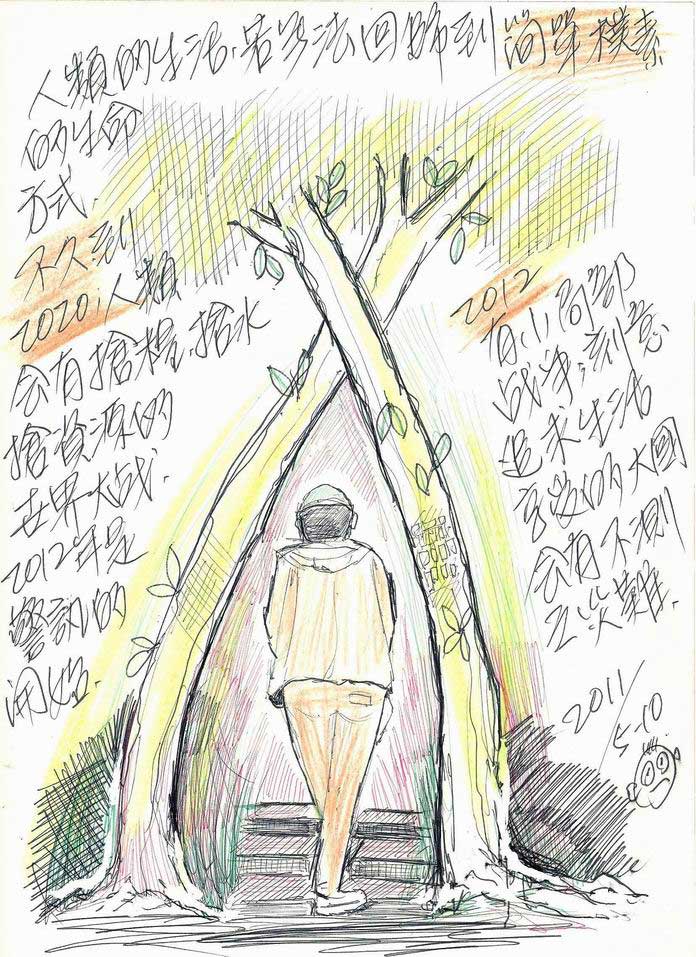 人類的生活.若無法回歸到簡單樸素
的生命
方式.
不久到
2020,人類
会有搶糧.搶水
搶資源的
世界大战.
2012年是
警訊的
開始.
2012
有小局部
战争,刻意
追求生活
享受的大國
会有不測
之災難.
2011/5-10